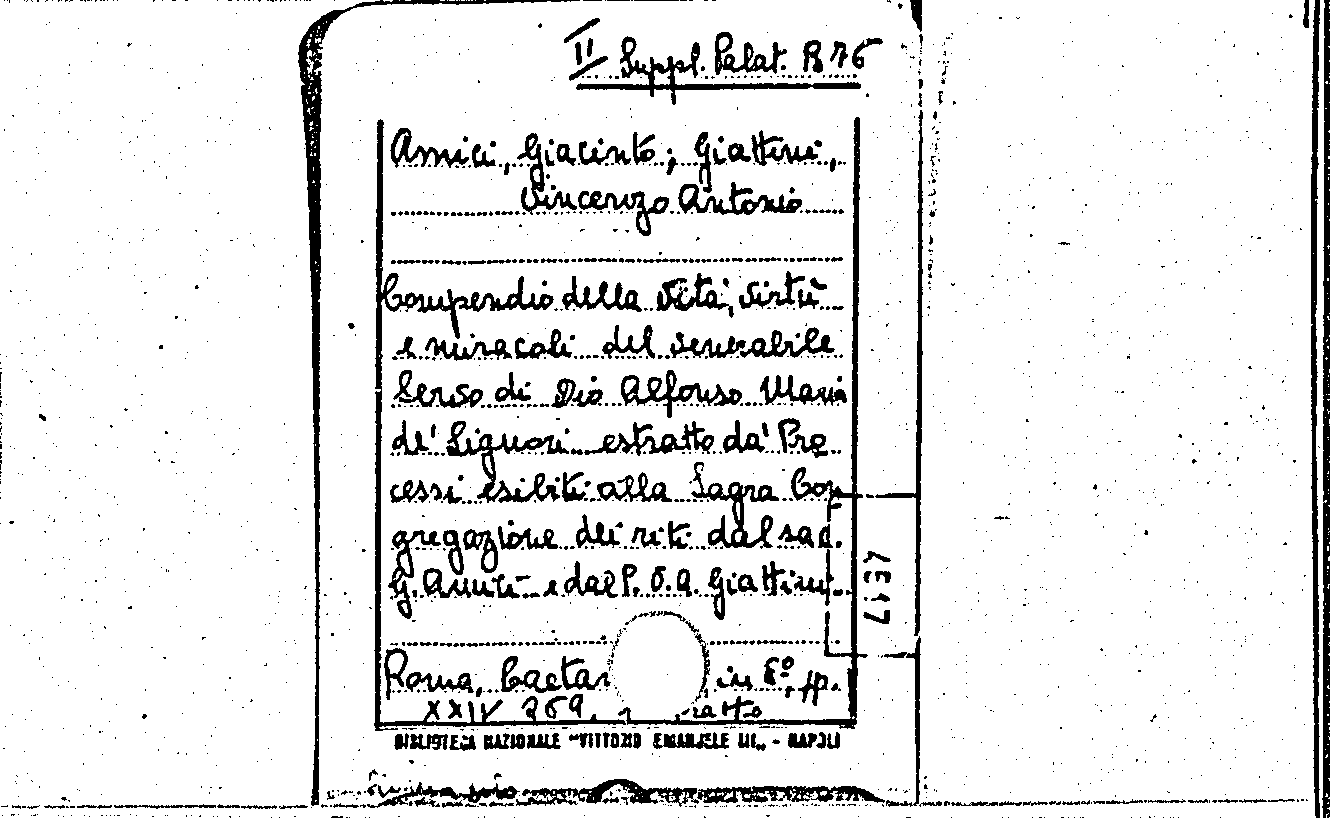 II Suppl. Palat. B 76
Amici, Giacinto; Giattini,
Vincenzo Antonio
Compendio della vita, virtù
e miracoli del venerabile
Servo di Dio Alfonso Maria
de' Liguori estratto da' Pro
cessi esibiti alla Sagra Con
gregazione dei riti dal sac.
G. Amici e dal P. V. A. Giattini
Roma, in 8º, pp.
XXIV 269,
BIBLIOTECA NAZIONALE "VITTORIO EMANUELE III" - NAPOLI